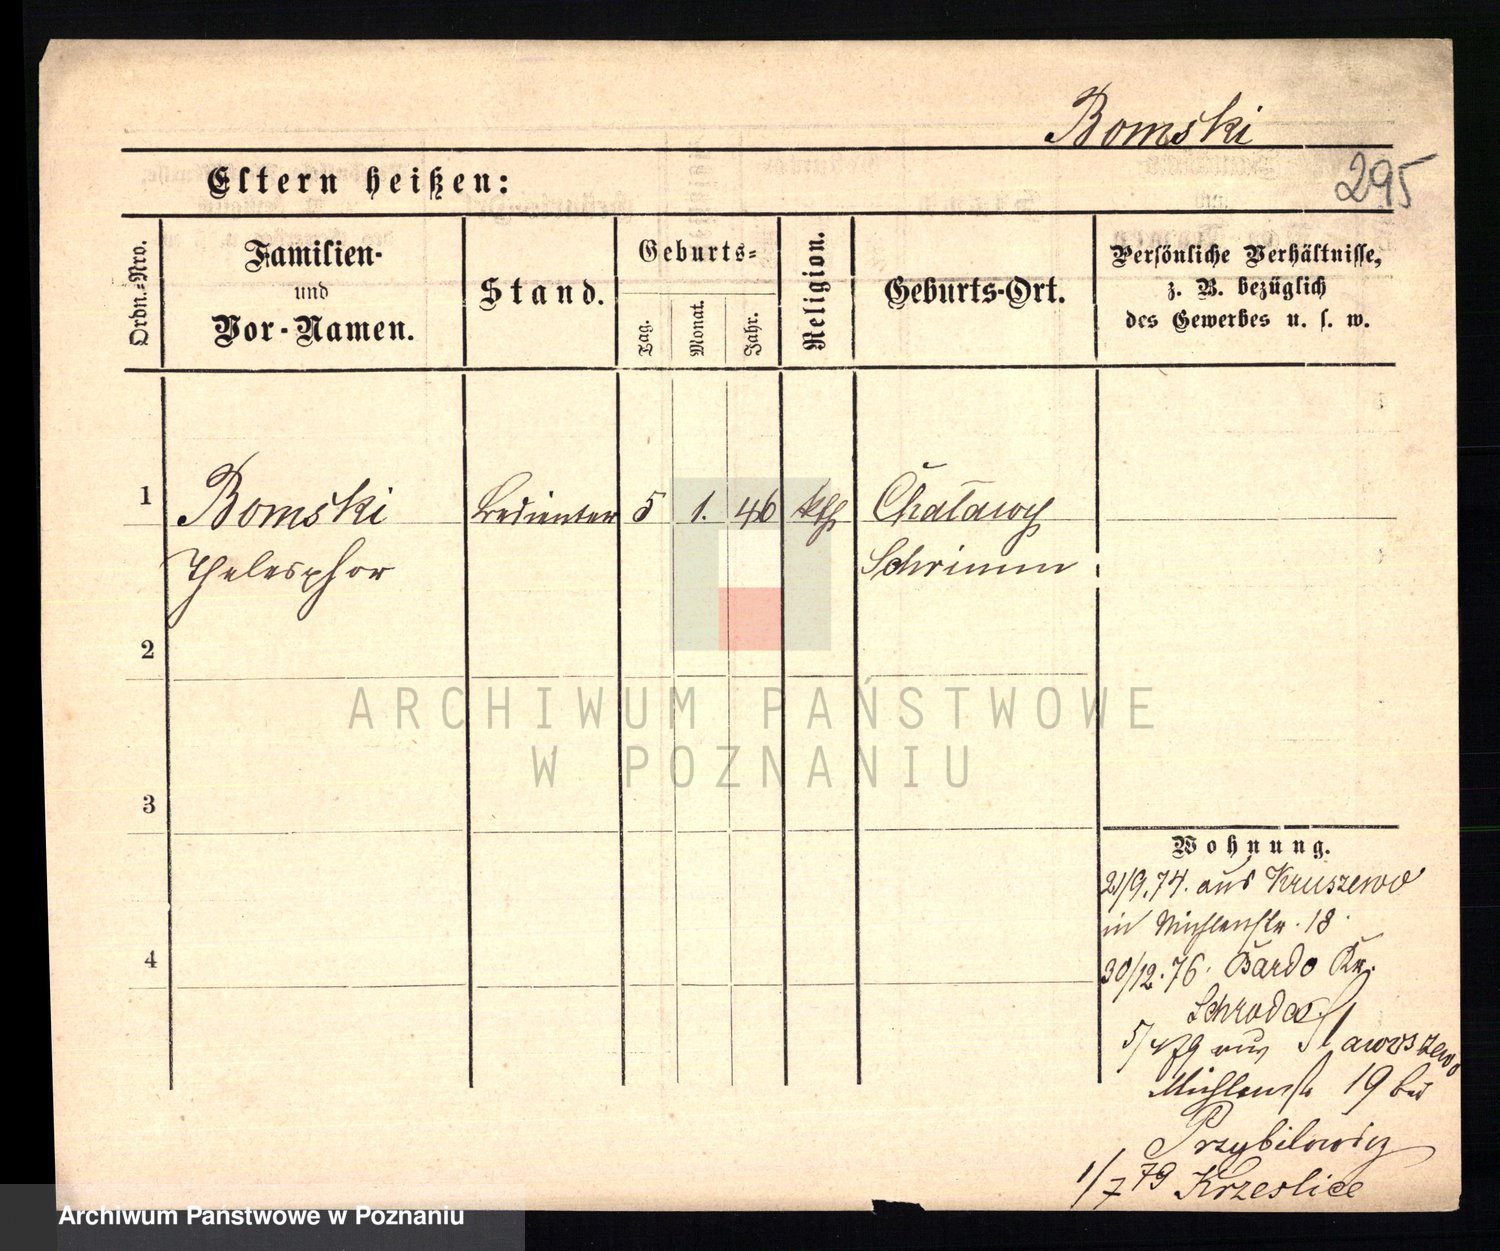 Bomski
295
Eltern heißen:
Ordn.-Nro.
Familien-
und
Vor-Namen.
Stand.
Geburts-
Tag.
Monat.
Jahr.
Religion.
Geburts-Ort.
Persönliche Verhältnisse,
z. B. bezüglich
des Gewerbes u. s. w.
1 Bomski Bedienter 5 1. 46 kth Chaławy
Thelesphor Schrimm
2
3
4
Wohnung.
21/9.74. aus Kruszewo
in Mühlenstr. 18.
30/12.76. Bardo Kr.
Schroda
5/4 79 aus Sławoszewo
Mühlenstr 19 bei
Przybilowicz
1/7 79 Krzeslice
ARCHIWUM PAŃSTWOWE
W POZNANIU
Archiwum Państwowe w Poznaniu